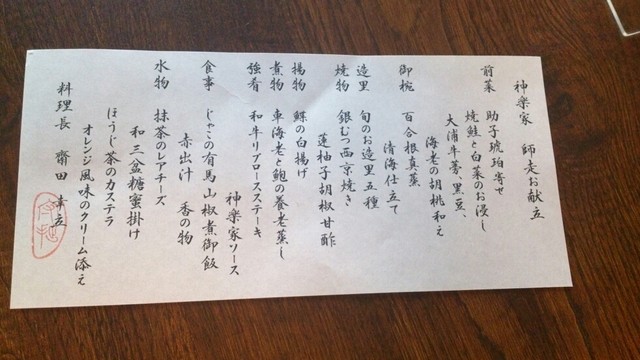 神楽家 師走お献立
前菜 助子琥珀寄せ
焼鮭と白菜のお浸し
大浦牛蒡、黒豆、
海老の胡桃和え
御椀 百合根真薯
清海仕立て
造里 旬のお造里五種
焼物 銀むつ西京焼き
蓮柚子胡椒甘酢
揚物 鰈の白揚げ
煮物 車海老と鮑の養老蒸し
強肴 和牛リブロースステーキ
神楽家ソース
食事 じゃこの有馬山椒煮御飯
赤出汁 香の物
水物 抹茶のレアチーズ
和三盆糖蜜掛け
ほうじ茶のカステラ
オレンジ風味のクリーム添え
料理長 齋田